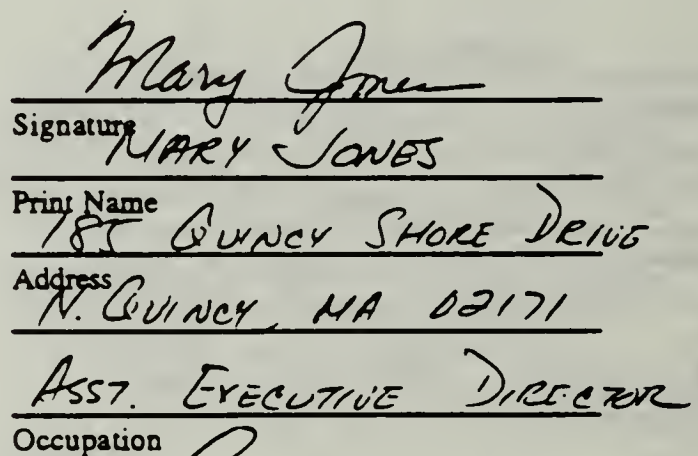 Mary Jones
Signature
MARY JONES
Print Name
185 QUINCY SHORE DRIVE
Address
N. QUINCY, MA 02171
ASST. EXECUTIVE DIRECTOR
Occupation